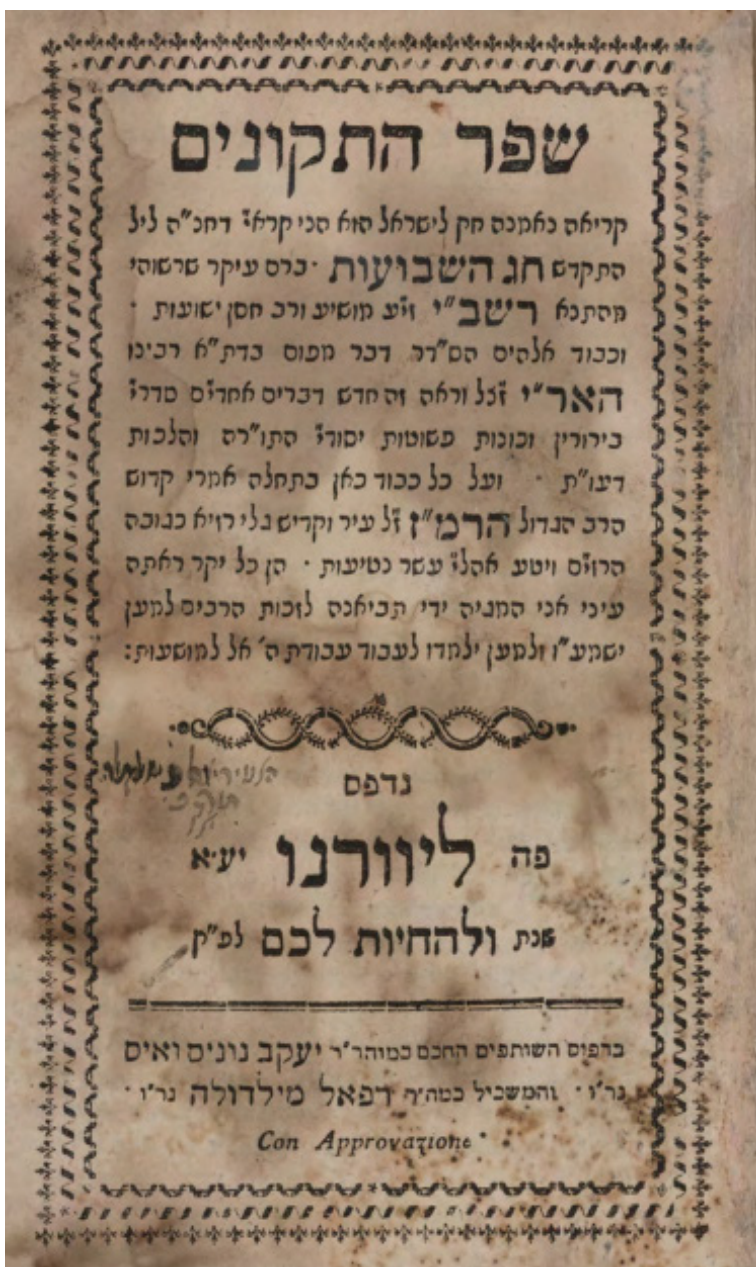 שפר התקונים
קריאה נאמנה חק לישראל הוא הכי קרא״י דחב״ה ליל
התקדש חג השבועות · ברם עיקר שרשוהי
מהתנא רשב״י זי״ע מושיע ורב חסן ישועות ·
וכבוד אלהים הס״דר דבר מפום בדת״א רבינו
האר״י ז״כל וראה זה חדש דברים אחדי״ם סדרי״
בירורין וכונות פשוטות יסודי״ התו״רה והלכות
דעו״ת · ועל כל כבוד כאן בתחלה אמרי קדוש
הרב הגדול הרמ״ז ז״ל עיר וקדיש גלי רזיא כגובה
הרזי״ם ויטע אהלי״ עשר נטיעות · הן כל יקר ראתה
עיני אני המגיה ידי תביאנה לזכות הרבים למען
ישמע״ו ולמען ילמדו לעבוד עבודת ה׳ אל למושעות:
נדפס
פה ליוורנו יע״א
שנת ולהחיות לכם לפ״ק
בדפוס השותפים החכם כמוהר״ר יעקב נוניס ואיס
נר״ו · והמשכיל כמה״ר רפאל מילדולה נר״ו ·
Con Approvazione